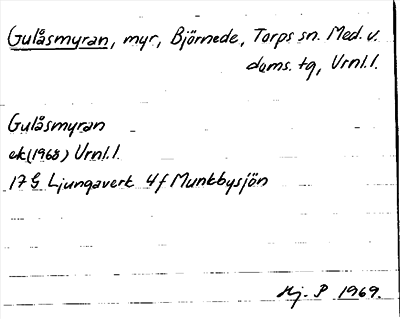 Gulåsmyran, myr, Björnede, Torps sn. Med. v.
doms. tg, Urnl. l.
Gulåsmyran
ek (1968) Urnl. l.
17 G Ljungaverk 4f Munkbysjön
Hj. P 1969.